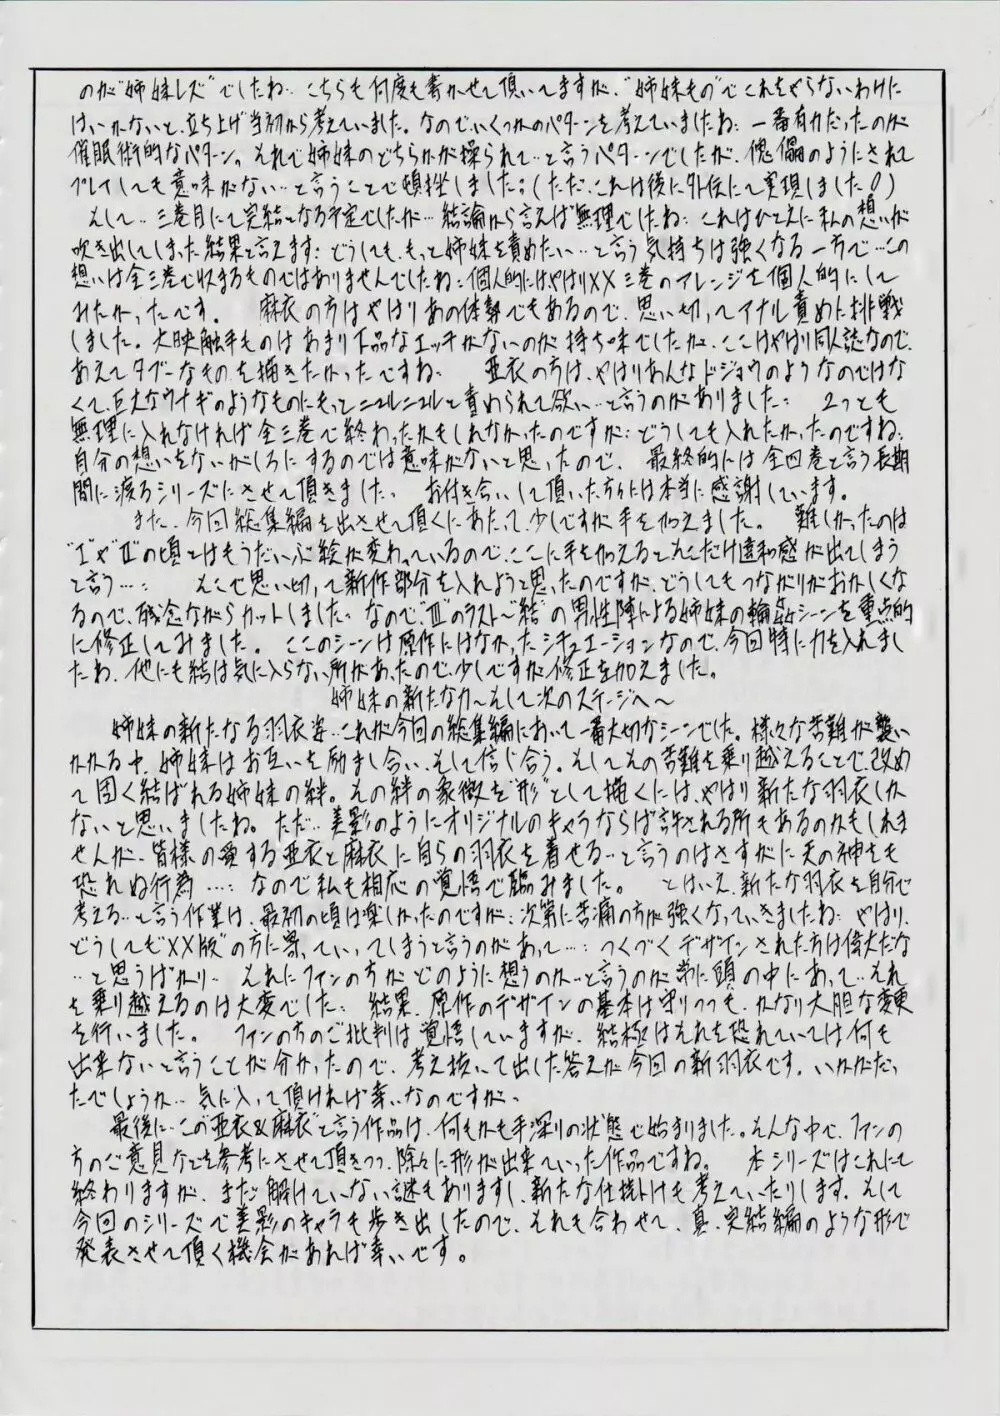 のが"姉妹レズ"でしたね… こちらも何度も書かせて頂いてますが、"姉妹もの"でこれをやらないわけに
はいかないと、立ち上げ当初から考えていました。なので、いくつかのパターンを考えていましたね… 一番有力だったのが
催眠術的なパターン。それで姉妹のどちらかが操られて…と言うパターンでしたが、傀儡のようにされて
プレイしても意味がない…と言うことで頓挫しました…(ただ、これは後に外伝にて実現しました!)
そして…三巻目にて完結となる予定でしたが…結論から言えば無理でしたね… これはひとえに私の想いが
吹き出してしまった結果と言えます… どうしても、もっと姉妹を責めたい…と言う気持ちは強くなる一方で…この
想いは全三巻で収まるものではありませんでしたね… 個人的にはやはりXX三巻のアレンジを個人的にして
みたかったです。 麻衣の方はやはりあの体勢でもあるので、思い切ってアナル責めに挑戦
しました。大映触手ものはあまり下品なエッチがないのが持ち味でしたが、ここはやはり同人誌なので、
あえてタブーなものを描きたかったですね… 亜衣の方は、やはりあんなドジョウのようなのではな
くて、巨大なウナギのようなものにもっとニュルニュルと責められて欲しい…と言うのがありました… 2つとも
無理に入れなければ全三巻で終わったかもしれなかったのですが… どうしても入れたかったのですね…
自分の想いをないがしろにするのでは意味がないと思ったので、最終的には全四巻と言う長期
間に渡るシリーズにさせて頂きました。 お付き合いして頂いた方々には本当に感謝しています。
また、今回総集編を出させて頂くにあたって、少しですが手を加えました。 難しかったのは
"Ⅰ"や"Ⅱ"の頃とはもうだいぶ絵が変わっているので、ここに手を加えるとそこだけ違和感が出てしまう
と言う…… そこで思い切って新作部分を入れようと思ったのですが、どうしてもつながりがおかしくな
るので、残念ながらカットしました… なので"Ⅲ"のラスト~"結"の男性陣による姉妹の輪姦シーンを重点的
に修正してみました。 ここのシーンは原作にはなかったシチュエーションなので、今回特に力を入れまし
たね。他にも結は気に入らない所があったので、少しですが修正を加えました。
姉妹の新たな力~そして次のステージへ~
姉妹の新たなる羽衣姿…これが今回の総集編において一番大切なシーンでした。様々な苦難が襲い
かかる中、姉妹はお互いを励まし合い、そして信じ合う。そしてその苦難を乗り越えることで、改め
て固く結ばれる姉妹の絆。その絆の象徴を"形"として描くには、やはり新たな羽衣しか
ないと思いましたね。ただ…美影のようにオリジナルのキャラならば許される所もあるのかもしれま
せんが、皆様の愛する亜衣と麻衣に自らの羽衣を着せる…と言うのはさすがに天の神をも
恐れぬ行為…… なので私も相応の覚悟で臨みました。 とはいえ、新たな羽衣を自分で
考える…と言う作業は、最初の頃は楽しかったのですが… 次第に苦痛の方が強くなっていきましたね… やはり、
どうしても"XX版"の方に寄っていってしまうと言うのがあって…… つくづくデザインされた方は偉大だな
…と思うばかり… それにファンの方がどのように想うのか…と言うのが常に頭の中にあって…それ
を乗り越えるのは大変でした… 結果、原作のデザインの基本は守りつつも、かなり大胆な変更
を行いました。 ファンの方のご批判は覚悟していますが、結極はそれを恐れていては何も
出来ないと言うことが分かったので、考え抜いて出した答えが今回の新羽衣です。いかがだっ
たでしょうか… 気に入って頂ければ幸いなのですが、
最後に…この"亜衣&麻衣"と言う作品は、何もかも手探りの状態で始まりました。そんな中で、ファンの
方のご意見などを参考にさせて頂きつつ、除々に形が出来ていった作品ですね。 本シリーズはこれにて
終わりますが、まだ解けていない謎もありますし、新たな仕掛けも考えていたりします。そして
今回のシリーズで美影のキャラも歩き出したので、それも合わせて、真・完結編のような形で
発表させて頂く機会があれば幸いです。